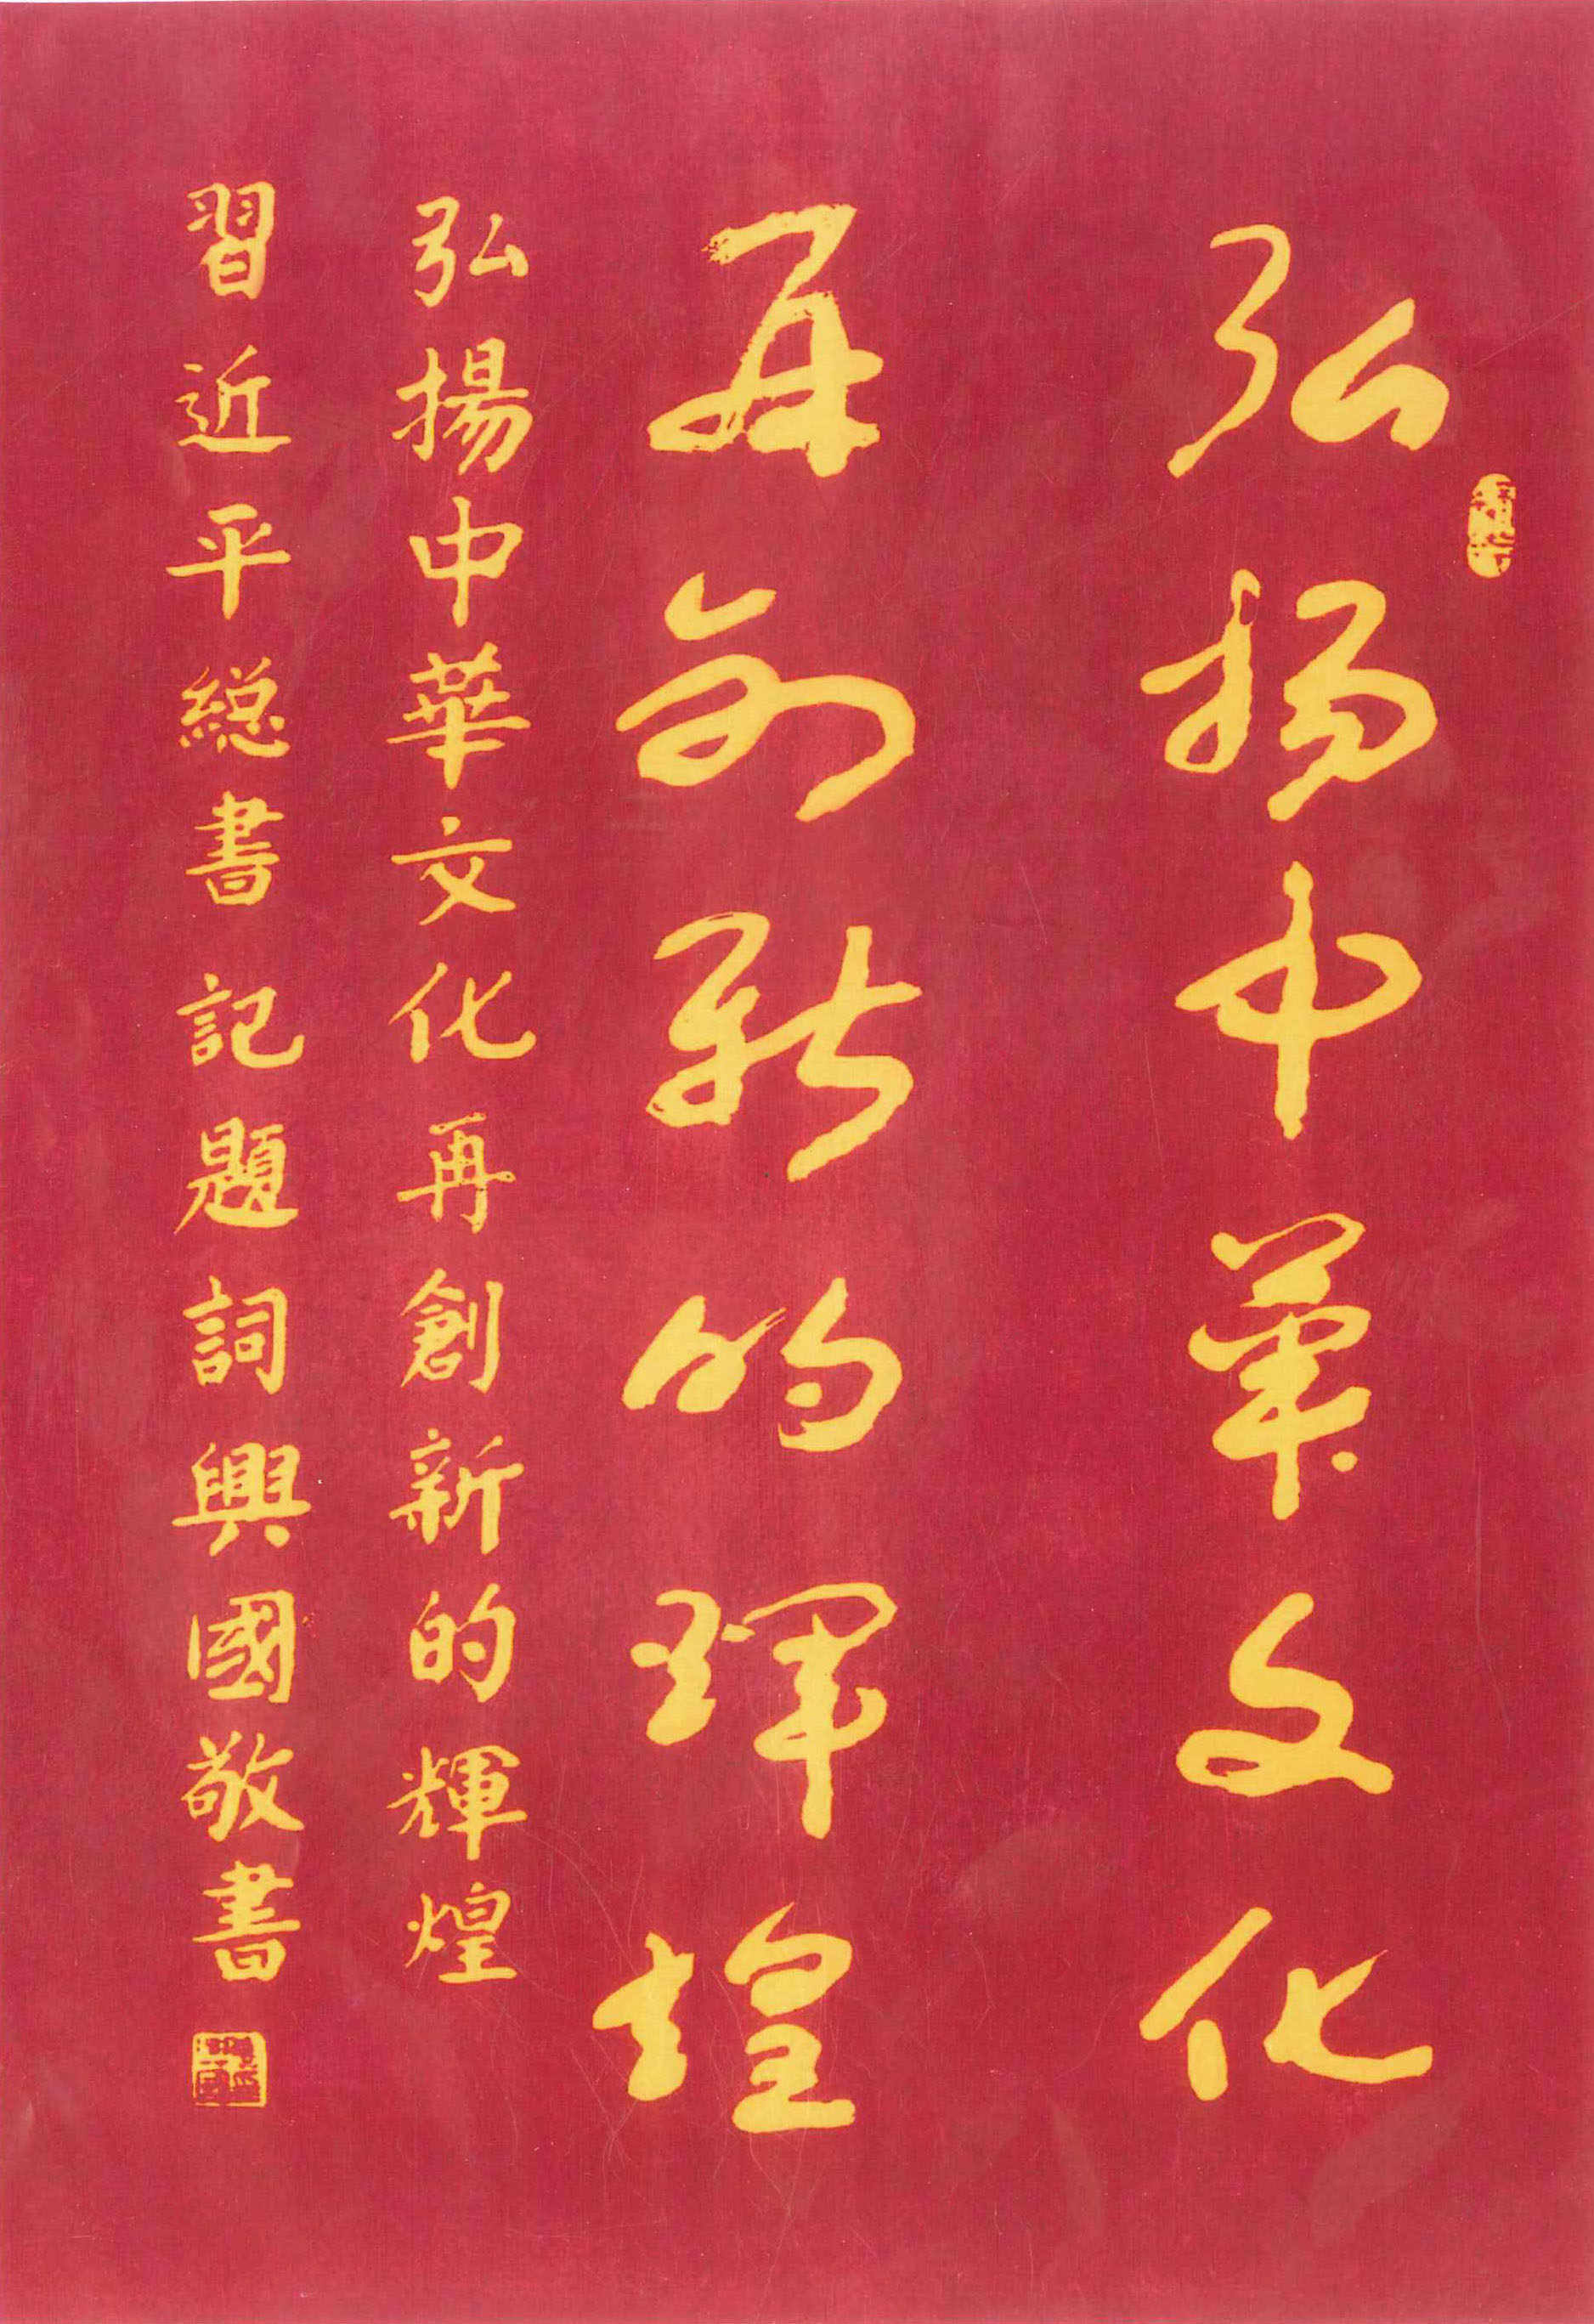 弘揚中華文化
再創新的輝煌
弘揚中華文化再創新的輝煌
習近平総書記題詞興國敬書